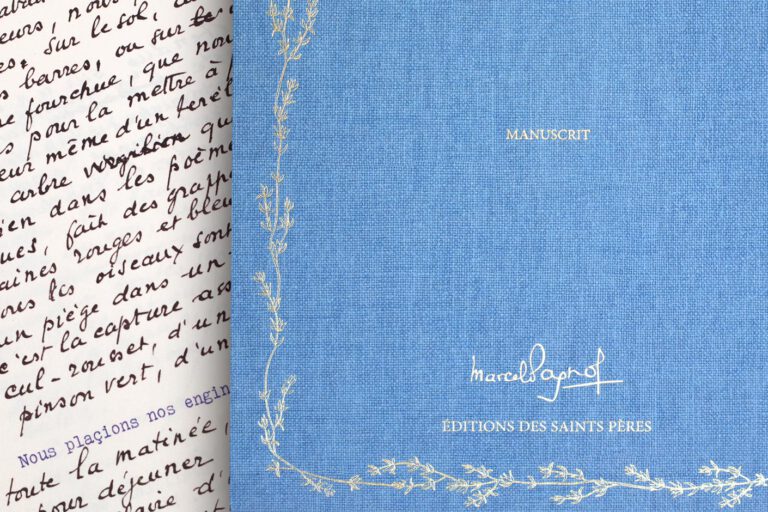 eurs, nou
sur le sol,
barres, ou sur
fourchue, que nou
pour la mettre à
eur même d'un teréb
arbre virgilien qu
ien dans les poème
ues, fait des grappe
aines rouges et bleu
ous les oiseaux sont
un piège dans un
c'est la capture ass
cul-rousset, d'un
pinson vert, d'un
Nous plaçions nos engin
toute la matinée,
pour déjeuner
aire d'
MANUSCRIT
Marcel Pagnol
ÉDITIONS DES SAINTS PÈRES